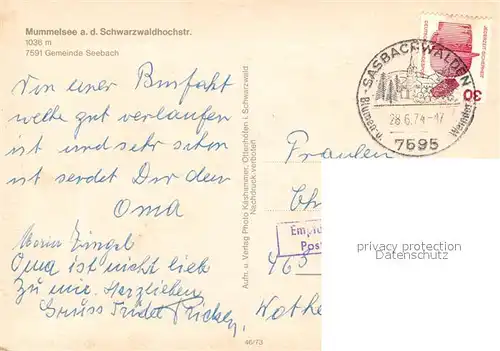 Mummelsee a. d. Schwarzwaldhochstr.
1036 m
7591 Gemeinde Seebach
Von einer Busfahrt
welche gut verlaufen
ist und sehr schön
ist sendet Dir den
Oma
Maria Zingel
Oma ist nicht lieb
zu mir. Herzlichen
Gruss
Aufn. u. Verlag Photo Käshammer, Ottenhöfen i. Schwarzwald
Nachdruck verboten
46/73
SASBACHWALDEN
Blumen- u. Wander
28.6.74-17
7595
30
DEUTSCHE BUNDESPOST
Fräulein
Ch
Empf
Post
463
privacy protection
Datenschutz